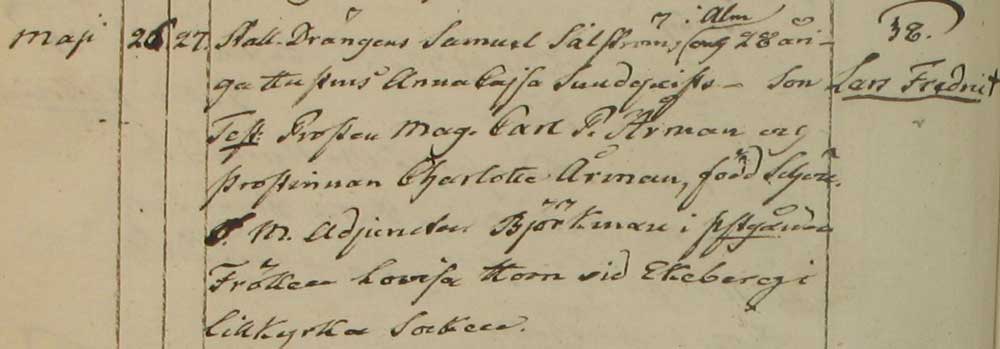 Maji 26 27. Stall-Drängens Samuel Sälström, i Alm och 28 åri- 38.
ga Hustrus Anna Cajsa Sundqvists - Son Lars Fredric †
Test: Prosten Mag. Carl P. Årman och
prostinnan Charlotte Årman, född
S. M. Adjuncten Björkman i pstgården
Fröken Lovisa Horn vid Ekeberg i
Lillkyrka Socken.